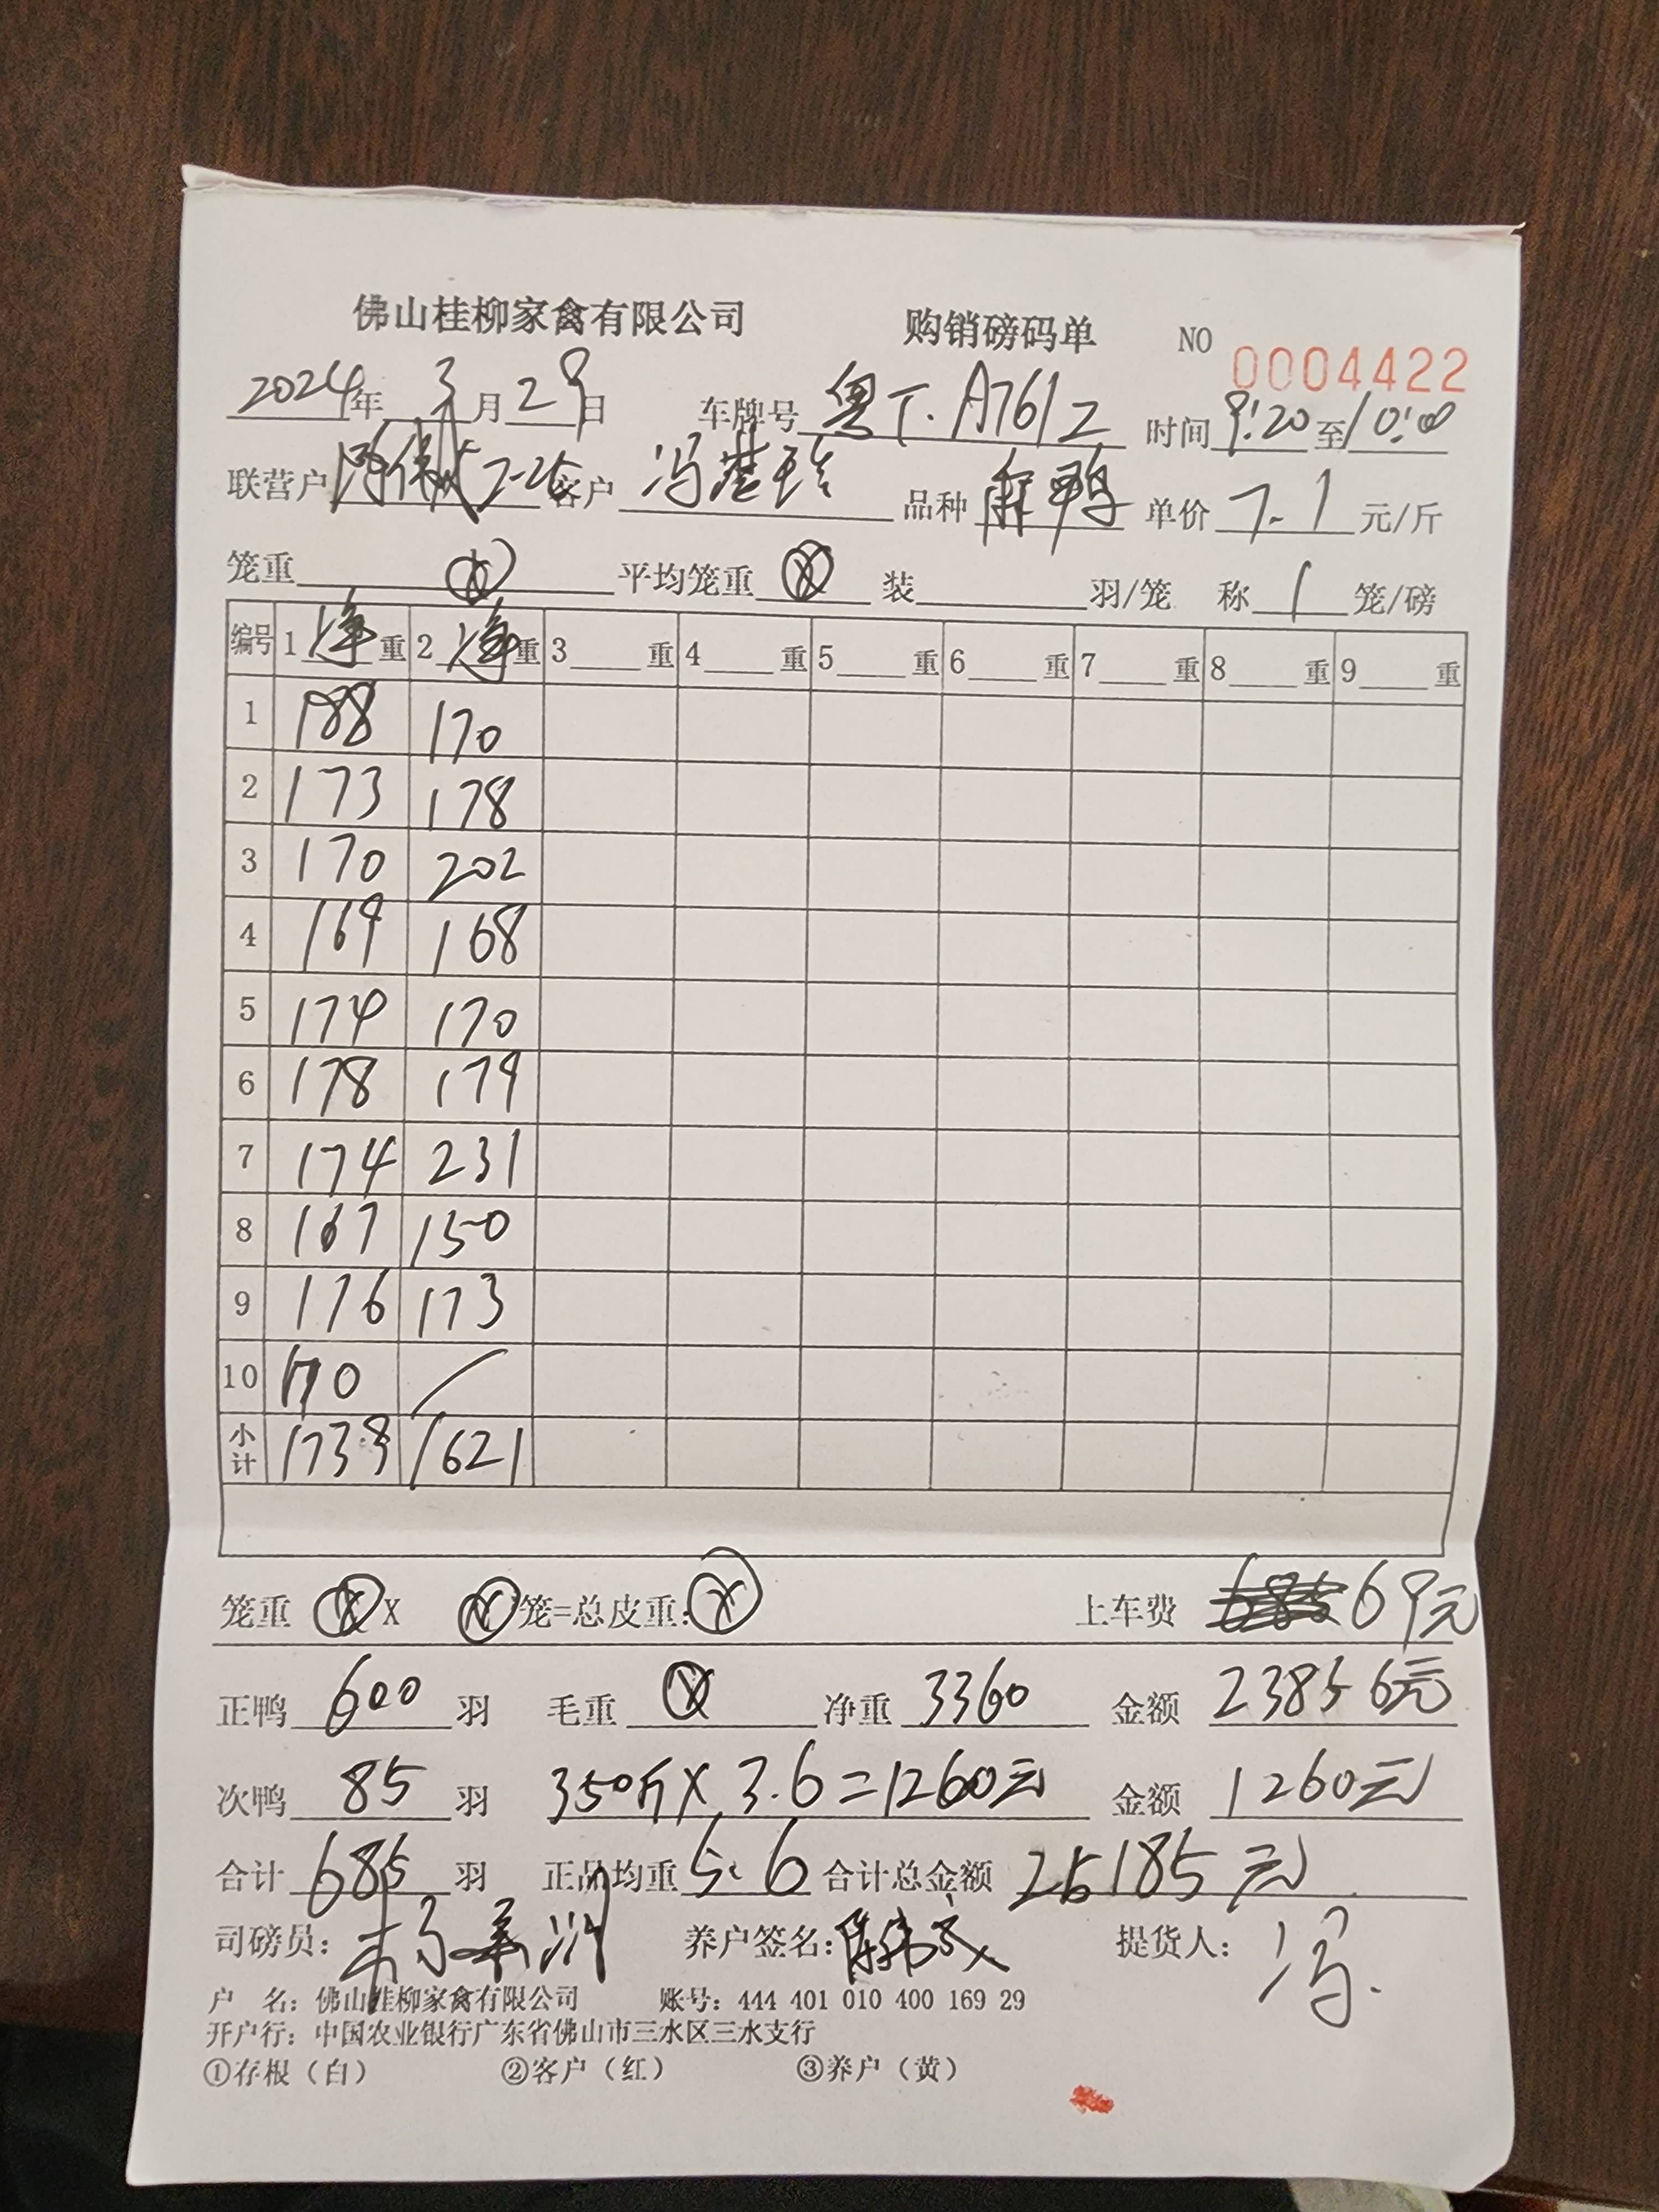 佛山桂柳家禽有限公司 购销磅码单 NO 0004422
2024年 3月29日 车牌号 粤T.A761Z 时间 9:20 至 10:00
联营户 7-25 客户 冯 品种 麻鸭 单价 7.1 元/斤
笼重 平均笼重 装 羽/笼 称 1 笼/磅
编号 1 净 重 2 净 重 3 重 4 重 5 重 6 重 7 重 8 重 9 重
1 188 170
2 173 178
3 170 202
4 169 168
5 174 170
6 178 179
7 174 231
8 167 150
9 176 173
10 170 /
小计 1739 1621
笼重 X 笼=总皮重: 上车费 69元
正鸭 600 羽 毛重 净重 3360 金额 23856元
次鸭 85 羽 350斤X3.6=1260元 金额 1260元
合计 685 羽 正品均重 5.6 合计总金额 25185元
司磅员: 养户签名: 提货人: 冯.
户 名: 佛山桂柳家禽有限公司 账号: 444 401 010 400 169 29
开户行: 中国农业银行广东省佛山市三水区三水支行
①存根（白） ②客户（红） ③养户（黄）